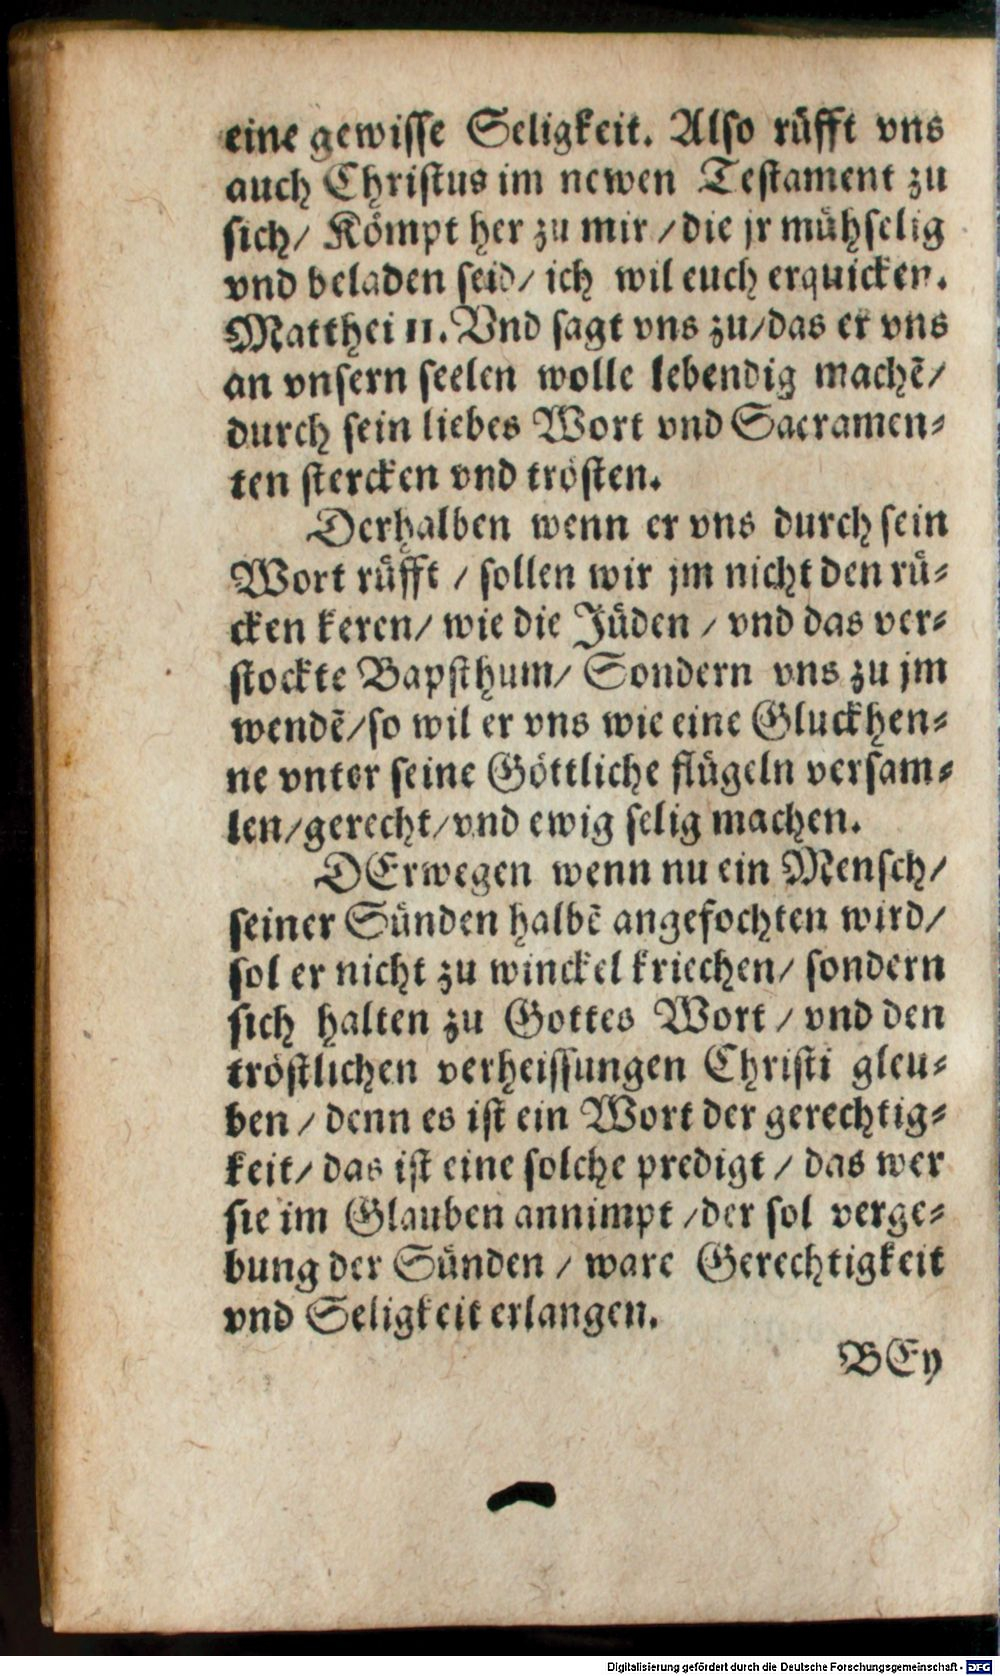 eine gewisse Seligkeit. Also rüfft vns
auch Christus im newen Testament zu
sich/ Kömpt her zu mir /die jr mühselig
vnd beladen seid/ ich wil euch erquicken.
Matthei 11. Vnd sagt vns zu/das er vns
an vnsern seelen wolle lebendig machẽ/
durch sein liebes Wort vnd Sacramen-
ten stercken vnd trösten.
Derhalben wenn er vns durch sein
Wort rüfft / sollen wir jm nicht den rü-
cken keren/ wie die Jüden / vnd das ver-
stockte Bapsthum/ Sondern vns zu jm
wendẽ/so wil er vns wie eine Gluckhen-
ne vnter seine Göttliche flügeln versam-
len/gerecht/vnd ewig selig machen.
DErwegen wenn nu ein Mensch/
seiner Sünden halbẽ angefochten wird/
sol er nicht zu winckel kriechen/ sondern
sich halten zu Gottes Wort / vnd den
tröstlichen verheissungen Christi gleu-
ben / denn es ist ein Wort der gerechtig-
keit/ das ist eine solche predigt / das wer
sie im Glauben annimpt /der sol verge-
bung der Sünden / ware Gerechtigkeit
vnd Seligkeit erlangen.
BEy
Digitalisierung gefördert durch die Deutsche Forschungsgemeinschaft - DFG